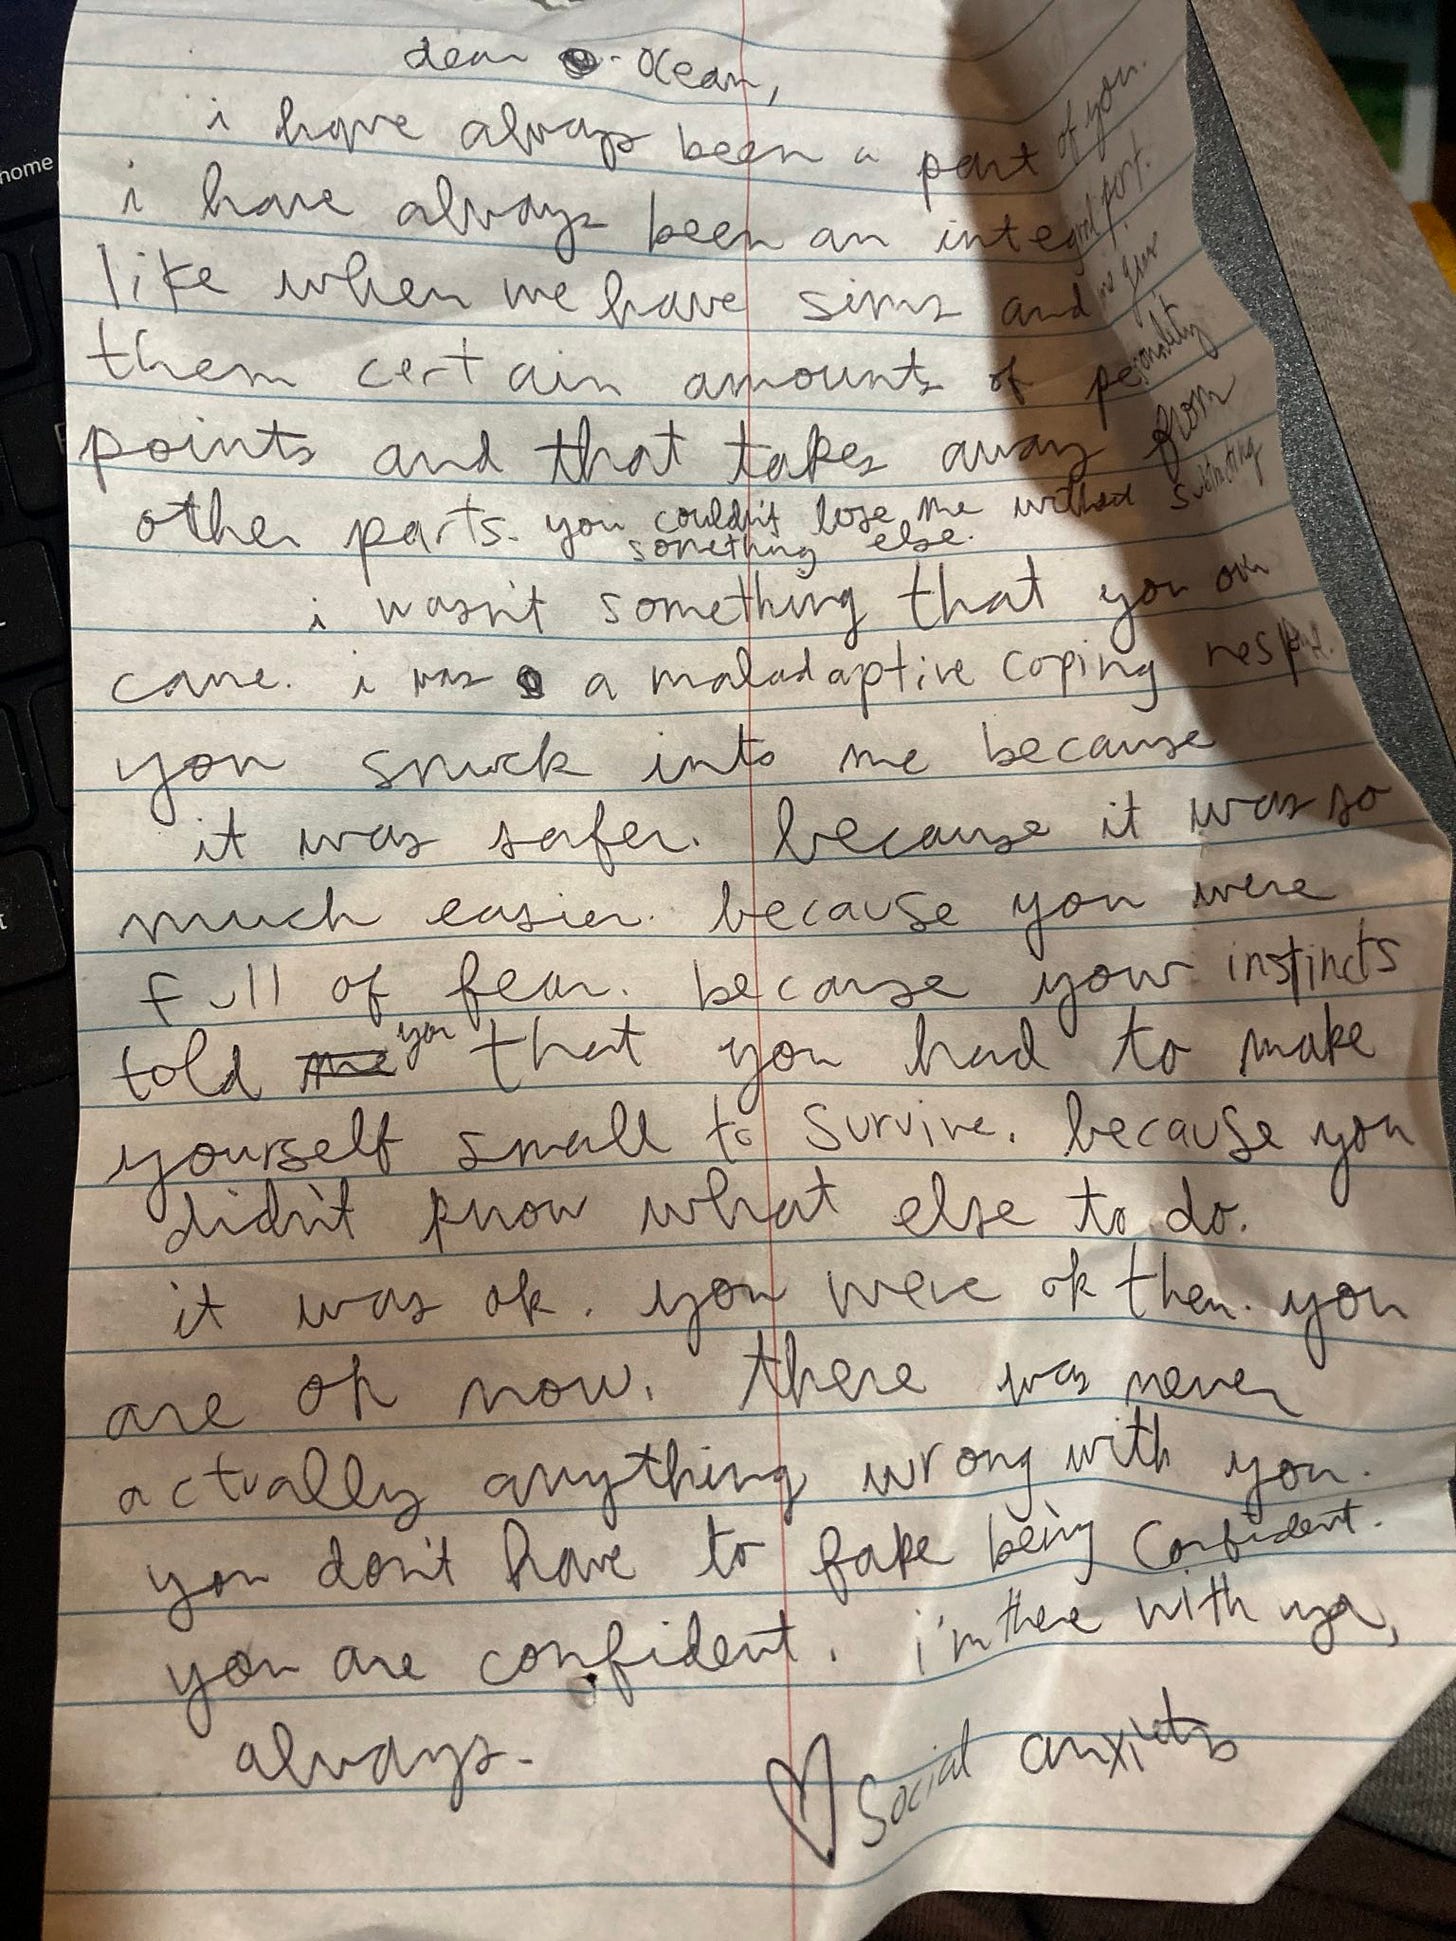 home
dear Ocean,
i have always been a part of you.
i have always been an integral part.
like when we have sims and we give
them certain amounts of personality
points and that takes away from
other parts. you couldn't lose me without subtracting
something else.
i wasn't something that you over
came. i was a maladaptive coping
you snuck into me because
it was safer. because it was so
much easier. because you were
full of fear. because your instincts
told me you that you had to make
yourself small to survive. because you
didn't know what else to do.
it was ok. you were ok then. you
are ok now. there was never
actually anything wrong with you.
you don't have to fake being confident.
you are confident. i'm there with you,
always.
♡ Social anxiety